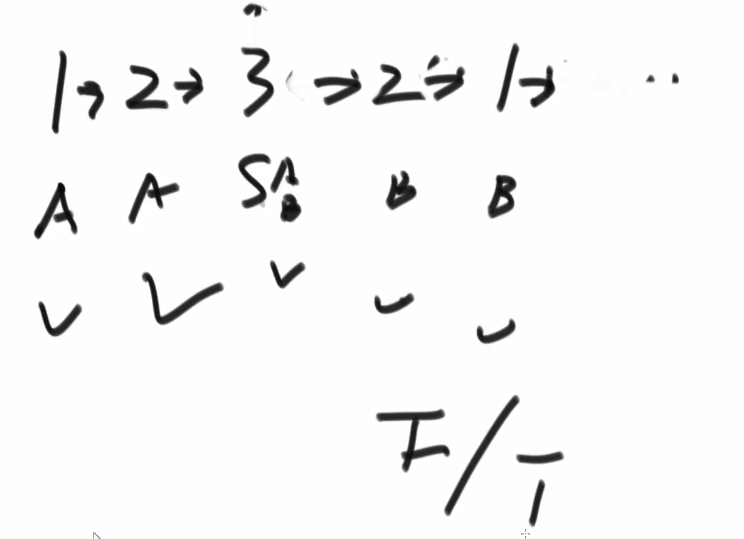 1 → 2 → 3 → 2 → 1 → ..
A A S A B B B
✓ ✓ ✓ ✓ ✓